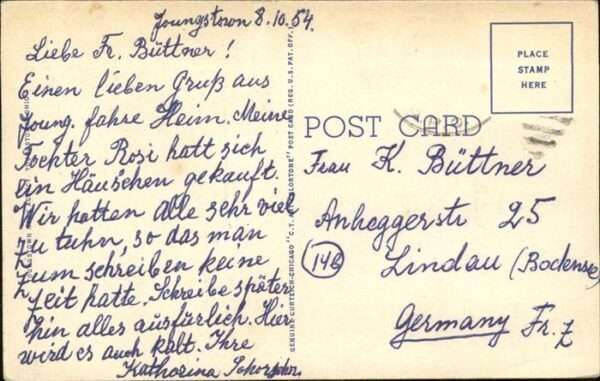 Youngstown 8.10.54.
Liebe Fr. Büttner!
Einen lieben Gruß aus
Young. fahre Heim. Meine
Tochter Rosi hatt sich
ein Häuschen gekauft.
Wir hatten alle sehr viel
zu tuhn, so das man
zum schreiben keine
Zeit hatte. Schreibe später
hin alles ausfürlich. Hier
wird es auch kalt. Ihre
Katharina
GENUINE CURTEICH-CHICAGO "C.T. ART-COLORTONE" POST CARD (REG. U.S. PAT. OFF.)
PLACE
STAMP
HERE
POST CARD
Frau K. Büttner
Anheggerstr 25
(146)
Lindau (Bodensee
Germany Fr. Z